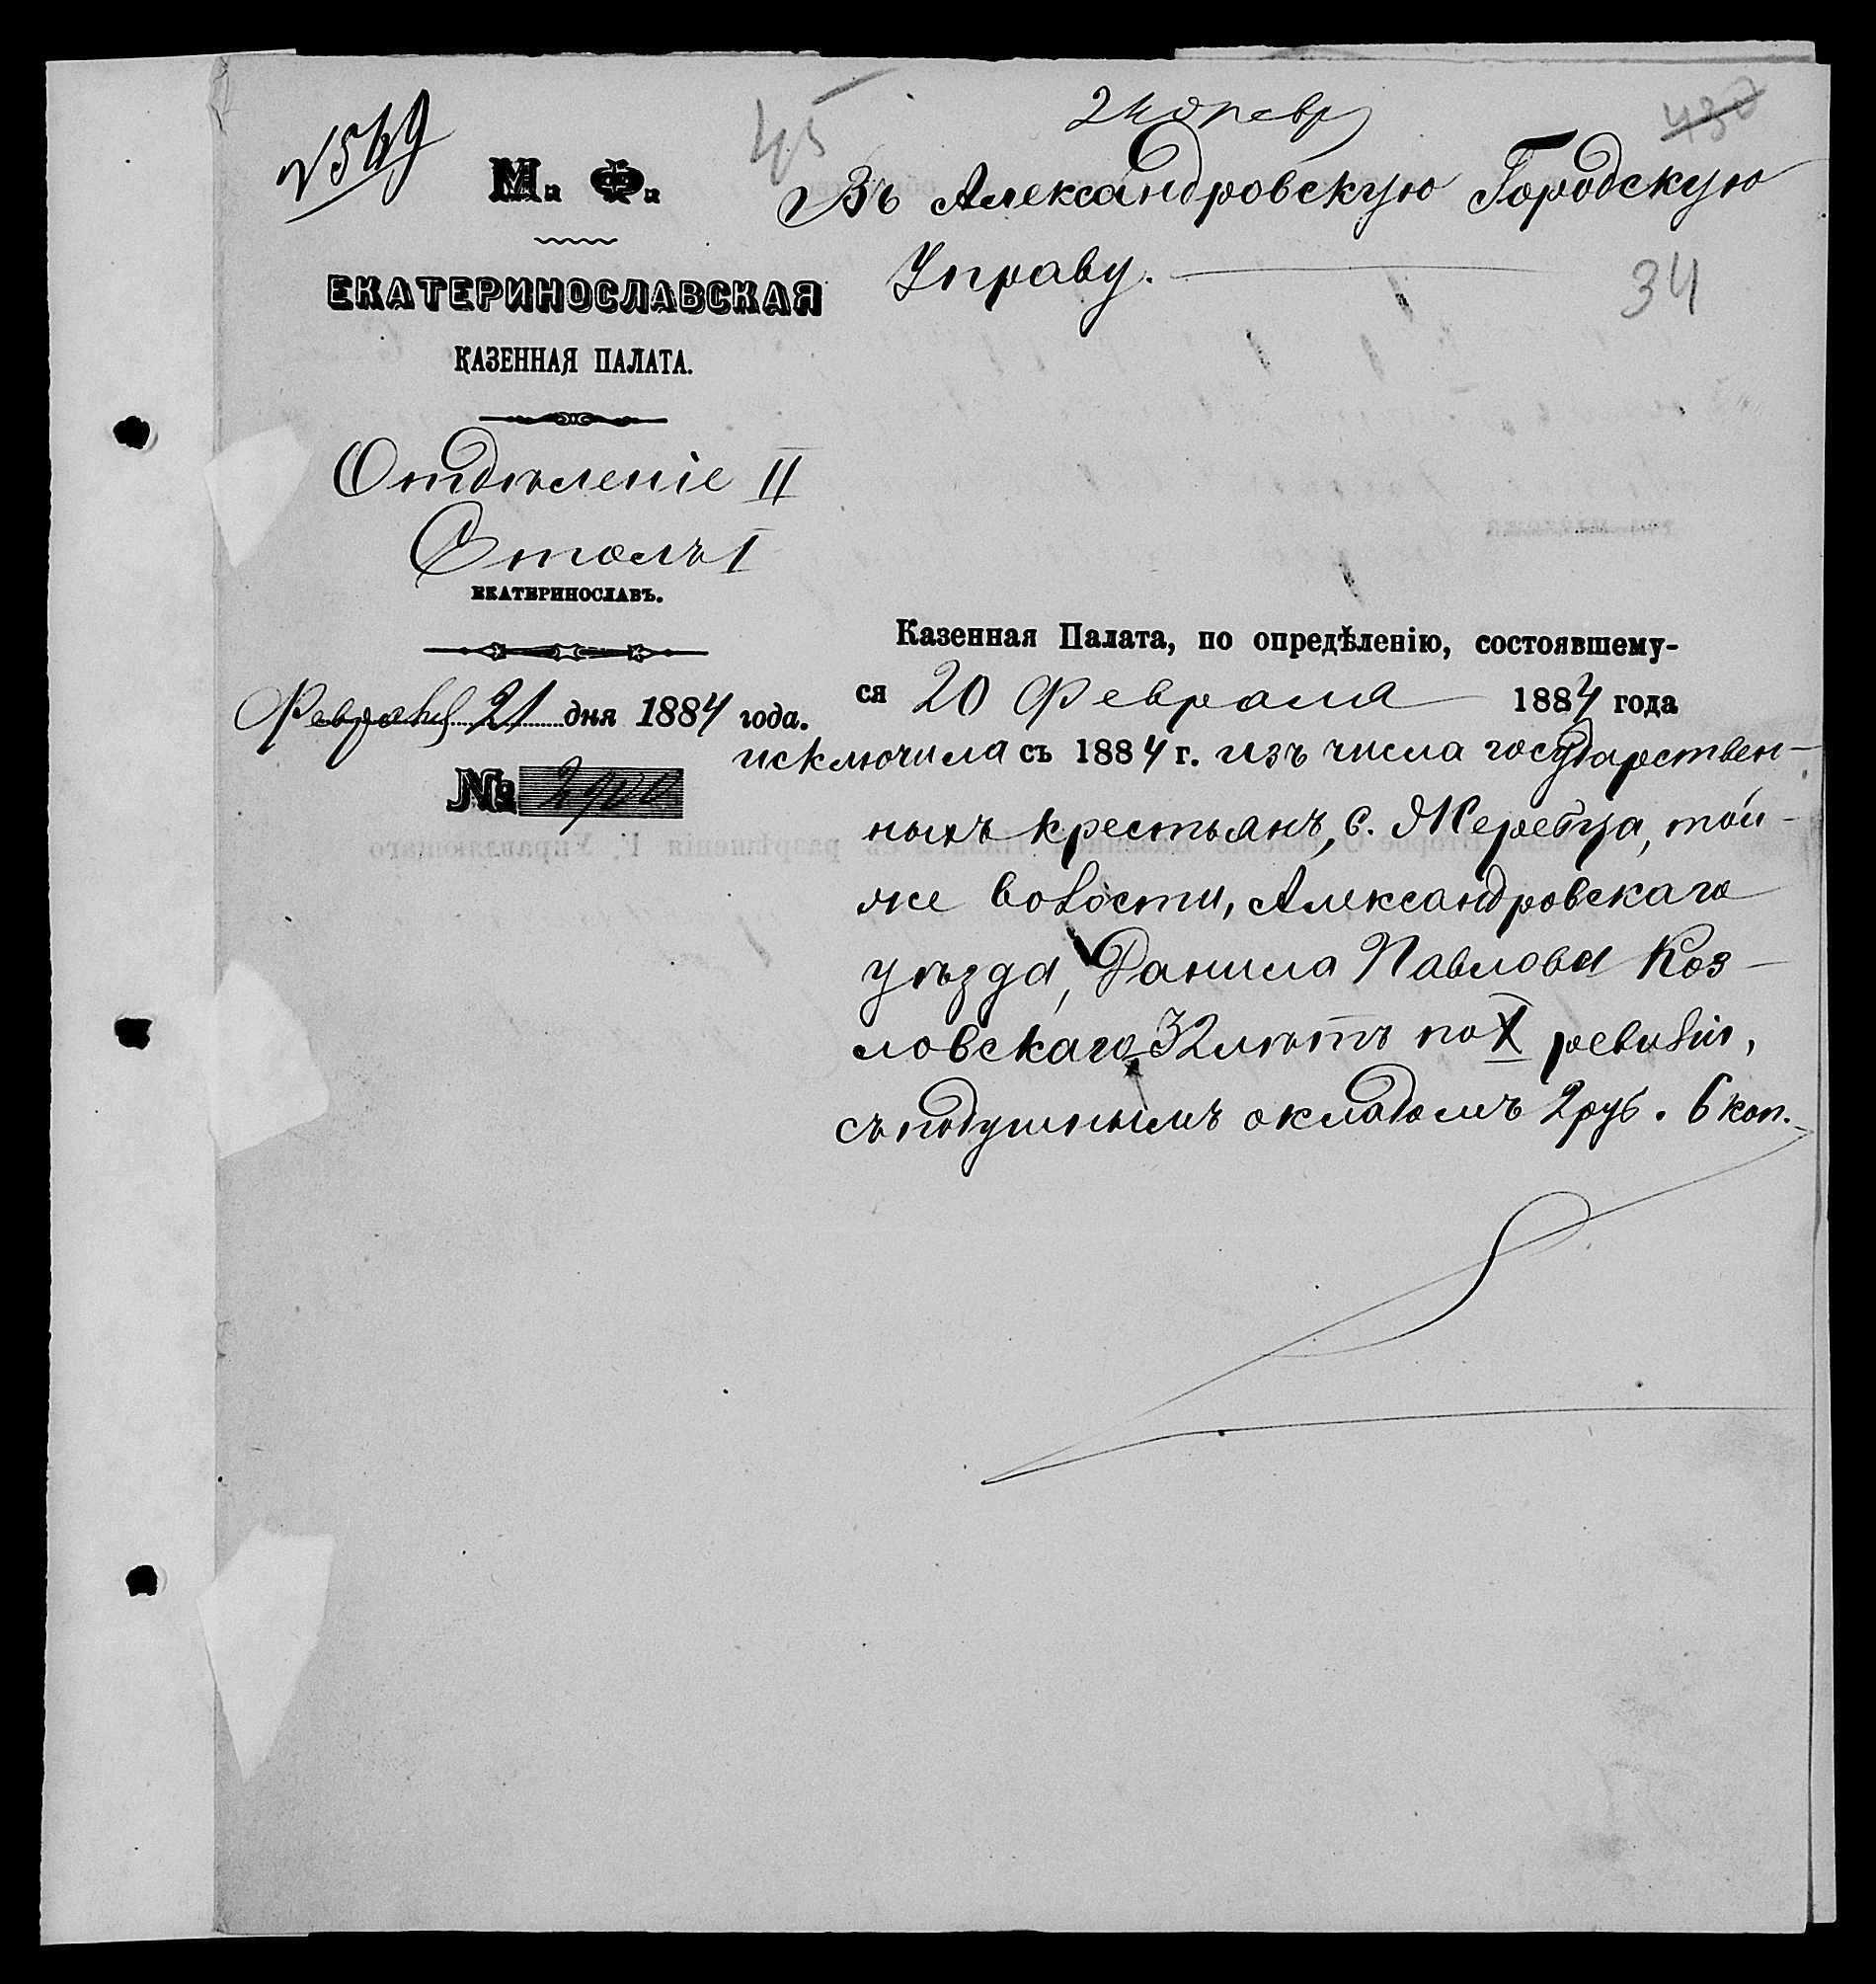 45
430
№ 549
М. Ф.
ЕКАТЕРИНОСЛАВСКАЯ
КАЗЕННАЯ ПАЛАТА.
Отдѣленіе II
Столъ I
ЕКАТЕРИНОСЛАВЪ.
Февраля 21 дня 1884 года.
№ 2900
Въ Александровскую Городскую
Управу.
34
Казенная Палата, по опредѣленію, состоявшему-
ся 20 Февраля 1884 года
исключила съ 1884 г. изъ числа государствен-
ныхъ крестьянъ, с. Жеребца, той-
же волости, Александровскаго
уѣзда, Данила Павлова Коз-
ловскаго 32 лѣтъ по X ревизіи,
съ подушнымъ окладомъ 2 руб. 6 коп.